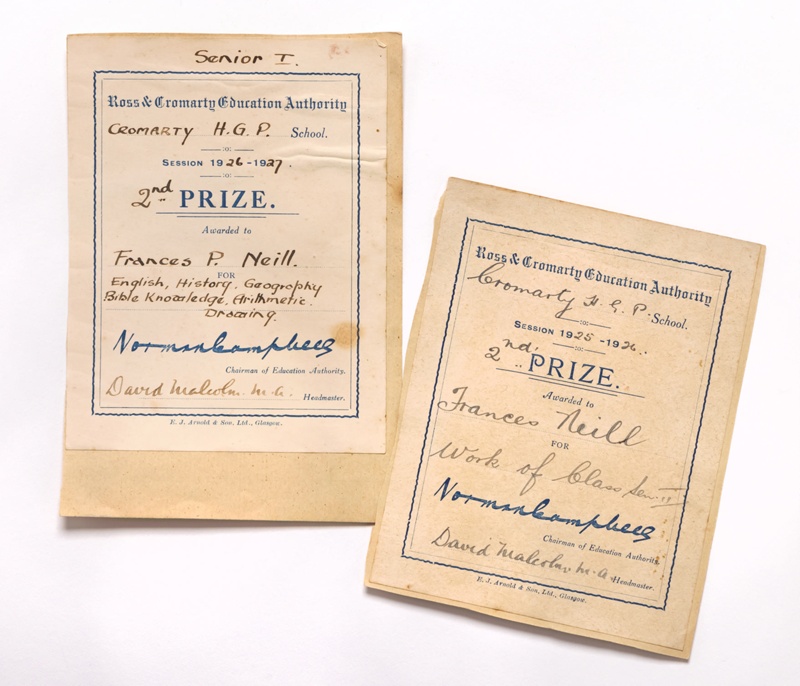 Senior I.
Ross & Cromarty Education Authority
Cromarty H.G.P. School.
Session 1926-1927.
2nd PRIZE.
Awarded to
Frances P. Neill.
FOR
English, History, Geography
Bible Knowledge, Arithmetic.
Drawing.
Norman Campbell
Chairman of Education Authority.
David Malcolm. M.A. Headmaster.
E. J. Arnold & Son, Ltd., Glasgow.
Ross & Cromarty Education Authority
Cromarty H. G. P. School.
Session 1925-1926.
2nd. PRIZE.
Awarded to
Frances Neill
FOR
Work of Class Sen. II
Norman Campbell
Chairman of Education Authority.
David Malcolm. M.A. Headmaster.
E. J. Arnold & Son, Ltd., Glasgow.